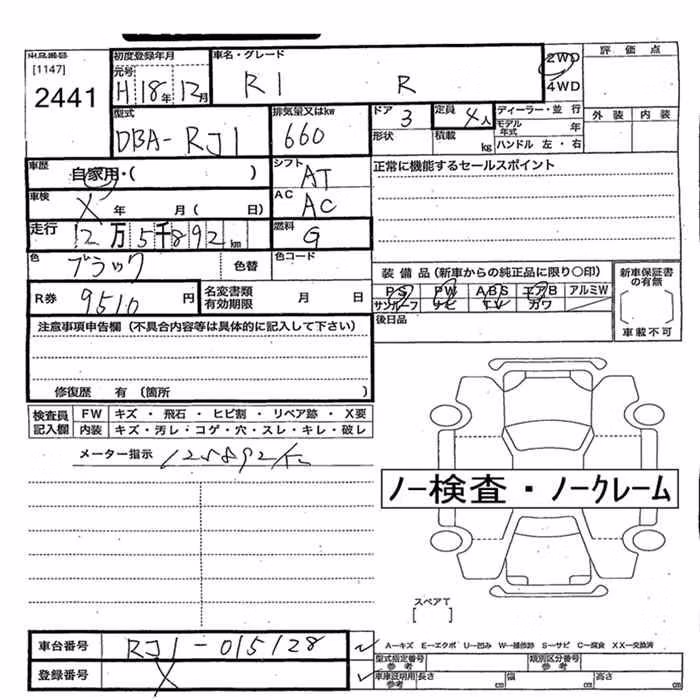 出品番号 初度登録年月 車名・グレード 2WD 評価点
[1147] 元号 4WD
2441 H 18年 12月 R1 R
型式 排気量又はkw ドア 3 定員 4人 ディーラー・並行 外装 内装
DBA-RJ1 660 形状 積載 kg モデル年式 年
ハンドル 左・右
車歴 自家用・( ) シフト AT 正常に機能するセールスポイント
車検 X 年 月( 日) AC AC
走行 12万5千892km 燃料 G
色 ブラック 色替 色コード
装備品(新車からの純正品に限り○印) 新車保証書の有無
R券 9510円 名変書類有効期限 月 日 PS PW ABS エアB アルミW
サンルーフ ナビ TV カワ 車載不可
注意事項申告欄(不具合内容等は具体的に記入して下さい) 後日品
修復歴 有(箇所 )
検査員記入欄 FW キズ・飛石・ヒビ割・リペア跡・X要
内装 キズ・汚レ・コゲ・穴・スレ・キレ・破レ
メーター指示 125892km
ノー検査・ノークレーム
スペアT
[ ]
車台番号 RJ1-015128
A-キズ E-エクボ U-凹み W-補修跡 S-サビ C-腐食 XX-交換済
登録番号 X
型式指定番号参考 類別区分番号参考
車庫証明用参考 長さ cm 幅 cm 高さ cm